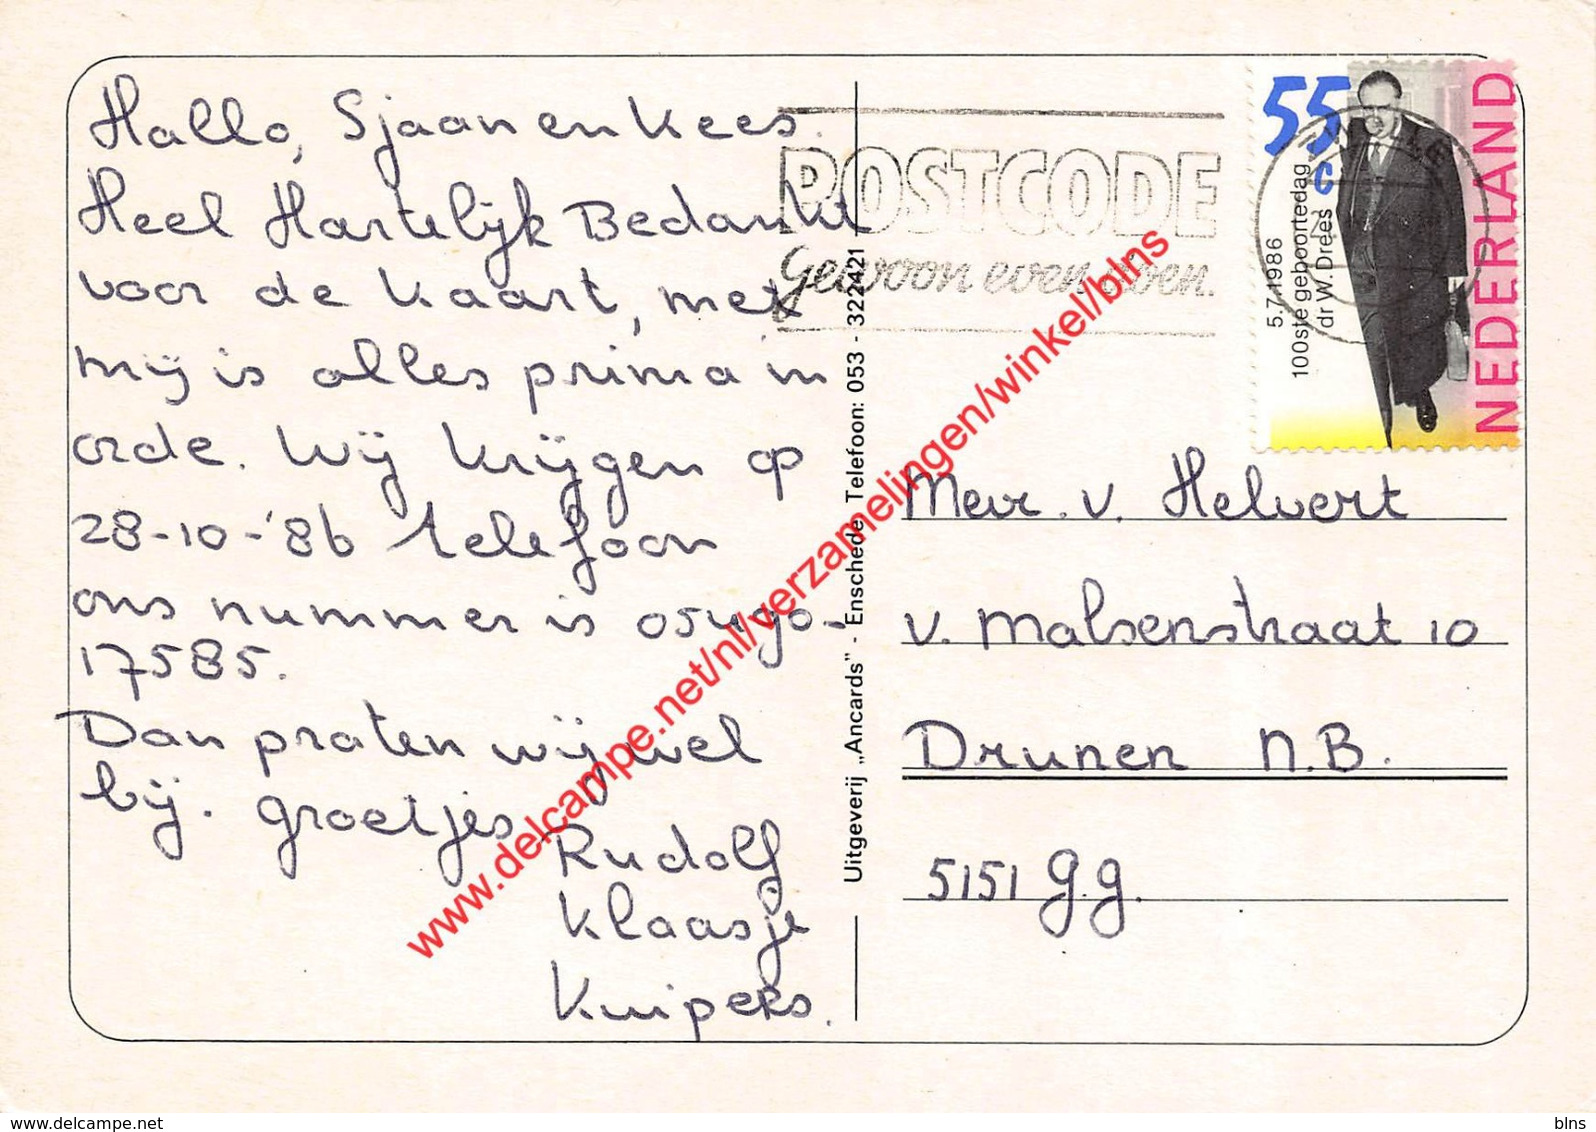 Hallo, Sjaan en Kees.
Heel Hartelijk Bedankt
voor de kaart, met
mij is alles prima in
orde. Wij krijgen op
28-10-'86 telefoon
ons nummer is 05490-
17585.
Dan praten wij wel
bij. groetjes
Rudolf
Klaasje
Kuipers.
Uitgeverij „Ancards" - Enschede Telefoon: 053 - 322421
POSTCODE
gewoon even doen.
55 c
5.7.1986
100ste geboortedag
dr W. Drees
NEDERLAND
Mevr. v. Helvert
v. Malsenstraat 10
Drunen N.B.
5151 g.g.
www.delcampe.net/nl/verzamelingen/winkel/blns
www.delcampe.net
blns